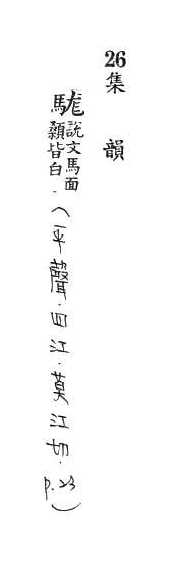 26集韻
駹說文馬面顙皆白．（平聲．四江．莫江切．p.23）